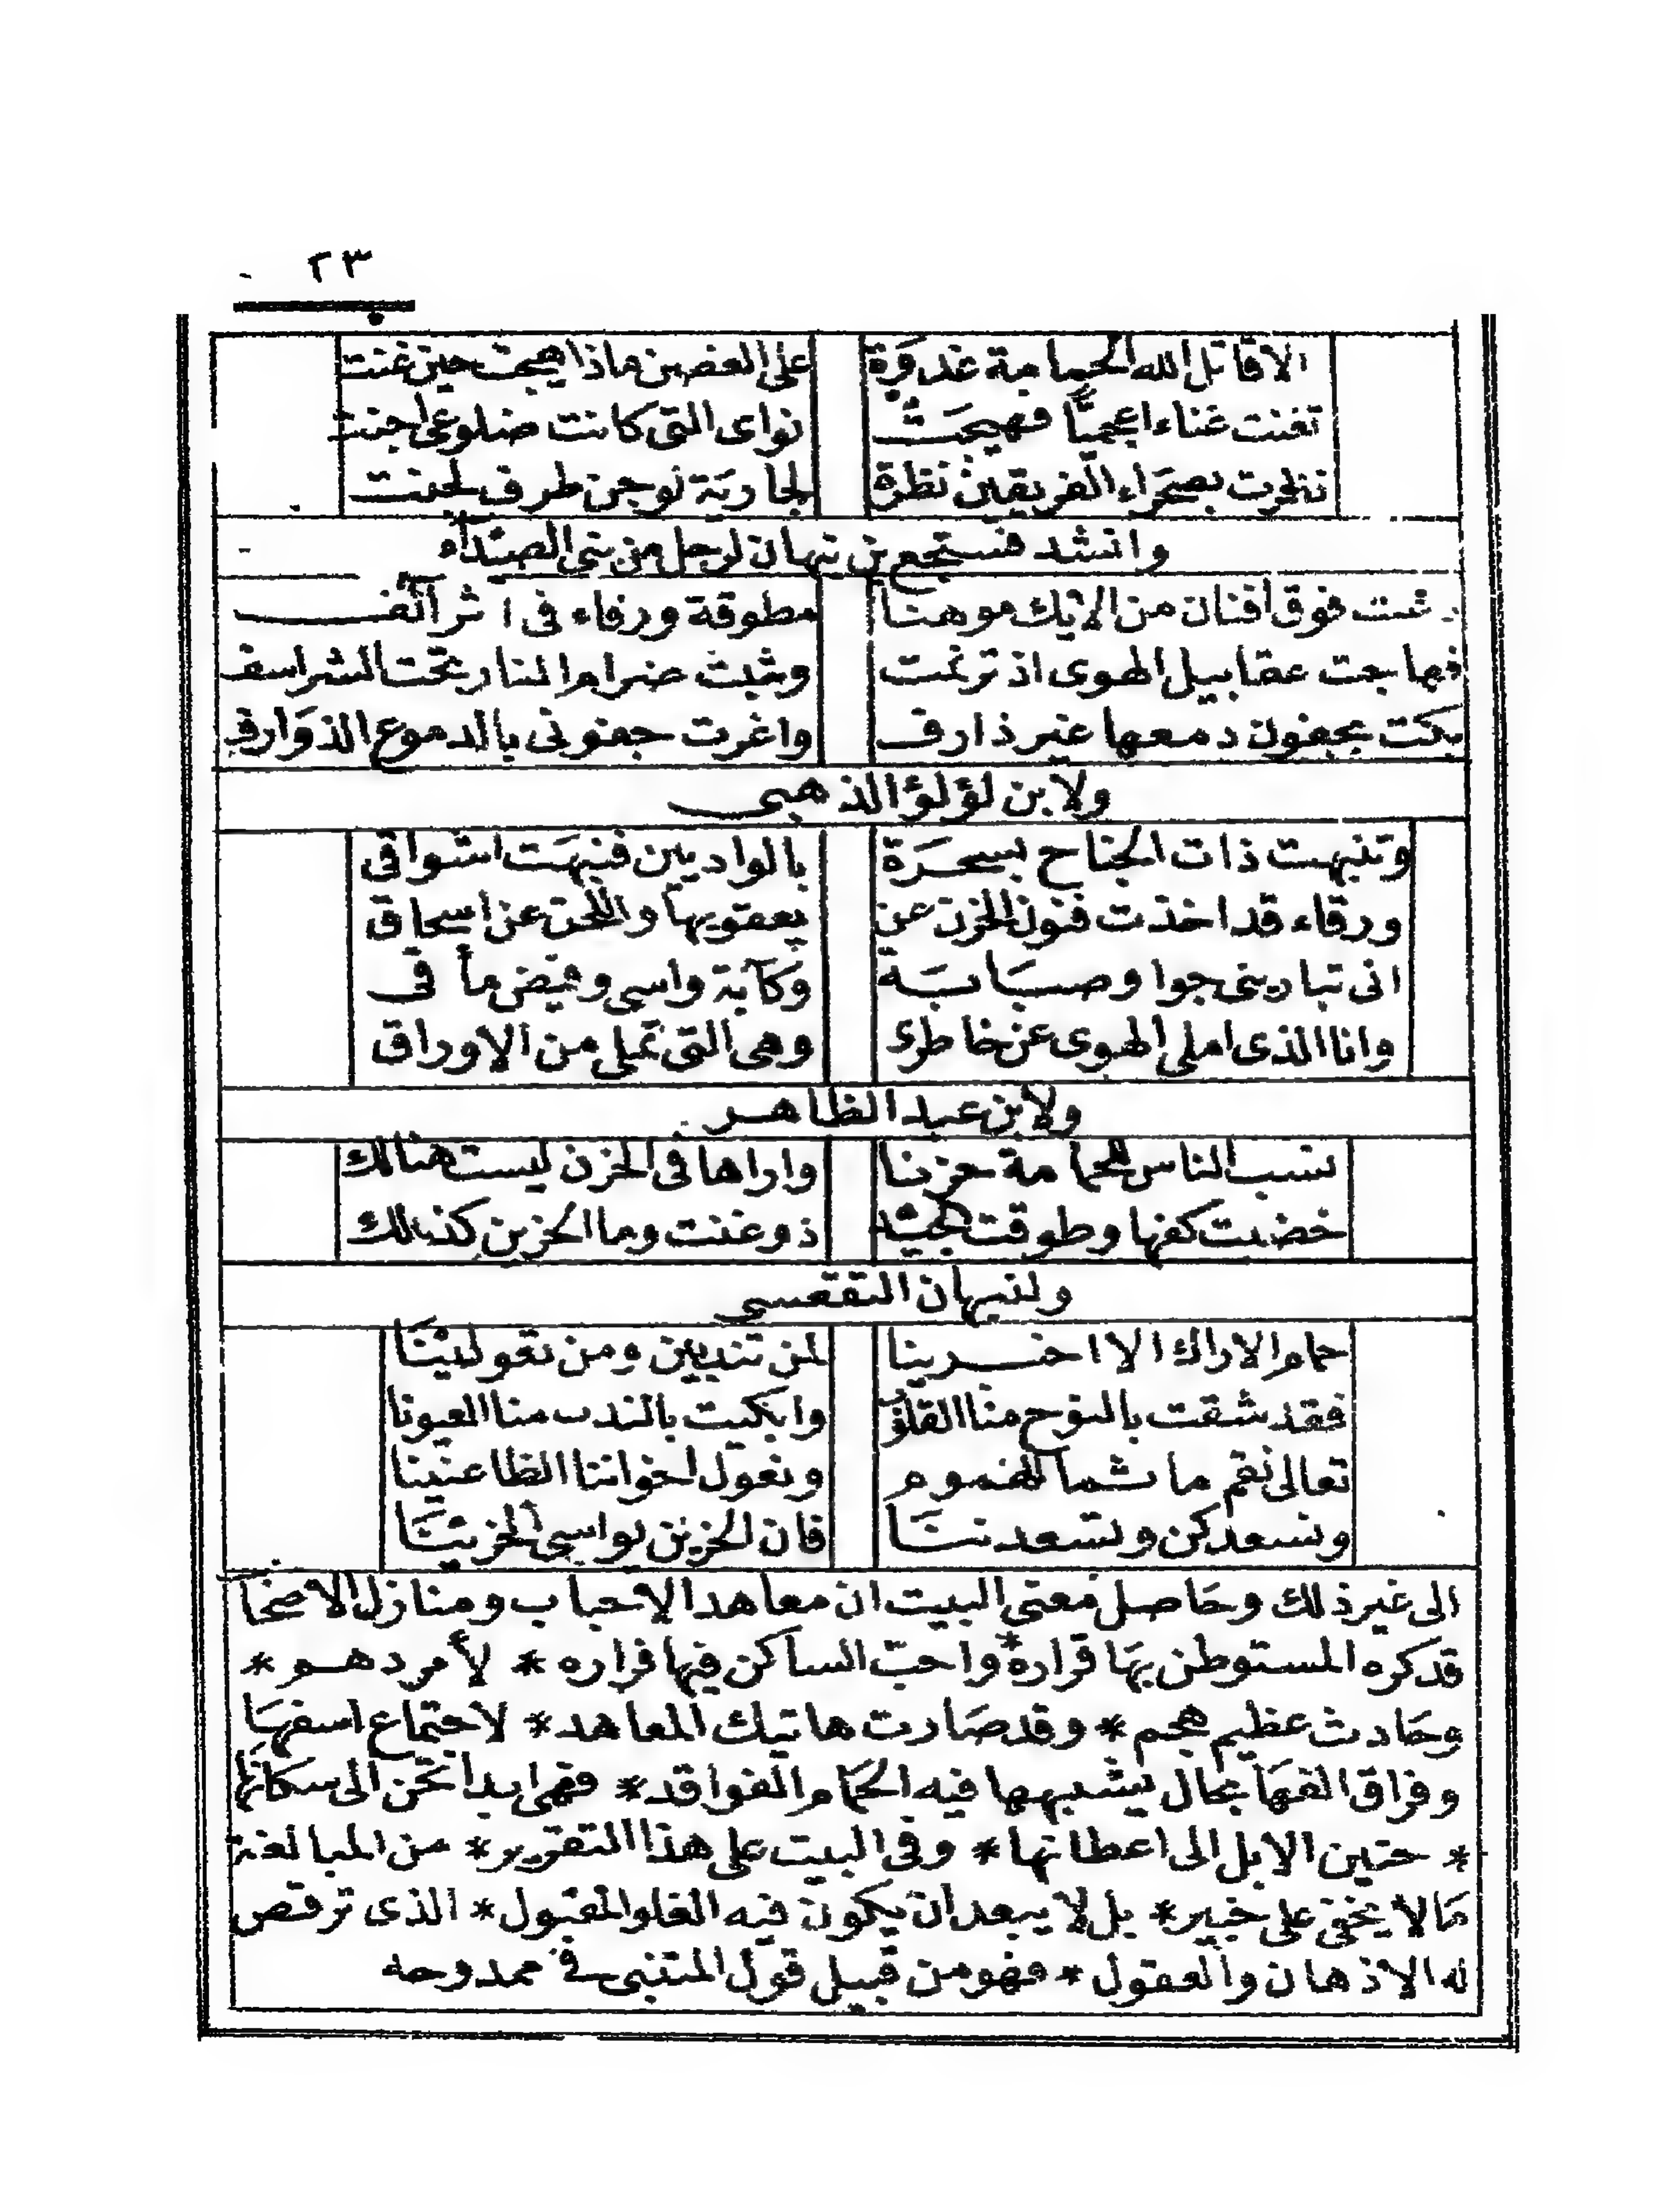 ٢٣
الاقاتل الله الحمامة غدوة على الغصن ماذا هيجت حين غنت
تغنت غناء اعجميّا فهيجت نواى التى كانت ضلوعى اجنت
نظرت بصحراء الفريقين نظرة لجارية لوجن طرف لجنت
وانشد بن نبهان لرجل من بنى الصيداء
دعت فوق افنان من الايك موهنا مطوقة ورقاء فى اثر آلف
فهاجت عقابيل الهوى اذ ترنمت وشبت ضرام النار تحت الشراسف
بكت بجفون دمعها غير ذارف واغرت جفونى بالدموع الذوارف
ولابن لؤلؤ الذهبى
وتنبهت ذات الجناح بسحرة بالواديين فنبهت اشواقى
ورقاء قد اخذت فنون الحزن عن يعقوبها واللحن عن اسحاق
انى تبارينى جوا وصبابة وكآبة واسى وفيض مأ قى
وانا الذى املى الهوى عن خاطرى وهى التى تملى من الاوراق
ولابن عبد الظاهر
نسب الناس للحمامة حزنا واراها فى الحزن ليست هنالك
خضبت كفها وطوقت الجيد وغنت وما الحزين كذلك
ولنبهان الفقعسى
حمام الاراك الا اخبرينا لمن تندبين ومن تعولينا
فقد شقت بالنوح منا القلوب وابكيت بالندب منا العيونا
تعالى نقم ماتما للهموم ونعول اخواننا الظاعنينا
ونسعدكن وتسعدننا فان الحزين يواسى الحزينا
الى غير ذلك وحاصل معنى البيت ان معاهد الاحباب ومنازل الاصحا
قد كره المستوطن بها قراره * واحبّ الساكن فيها فراره * لأمر دهم *
وحادث عظيم هجم * وقد صارت هاتيك المعاهد * لاجتماع اسفها
وفراق الفها بحال يشبهها فيه الحمام الفواقد * فهى ابدا تحن الى سكانها
* حنين الابل الى اعطانها * وفى البيت على هذا التقرير * من المبالغة
مالا يخفى على خبير * بل لا يبعد ان يكون فيه الغلو المقبول * الذى ترقص
له الاذهان والعقول * فهو من قبيل قول المتنبى فى ممدوحه